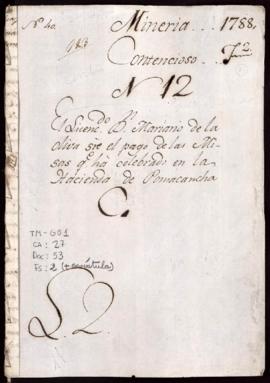 Nº 40.
Mineria . . . 1788,
983
Contencioso
N 12
El Licenc.do Dn. Mariano de la
oliva sre el pago de las Mi-
sas q.e ha celebrado en la
Hacienda de Pomacancha
C.
TM-GO1
CA: 27
Doc: 53
Fs: 2 (+ carátula)
L. 2.